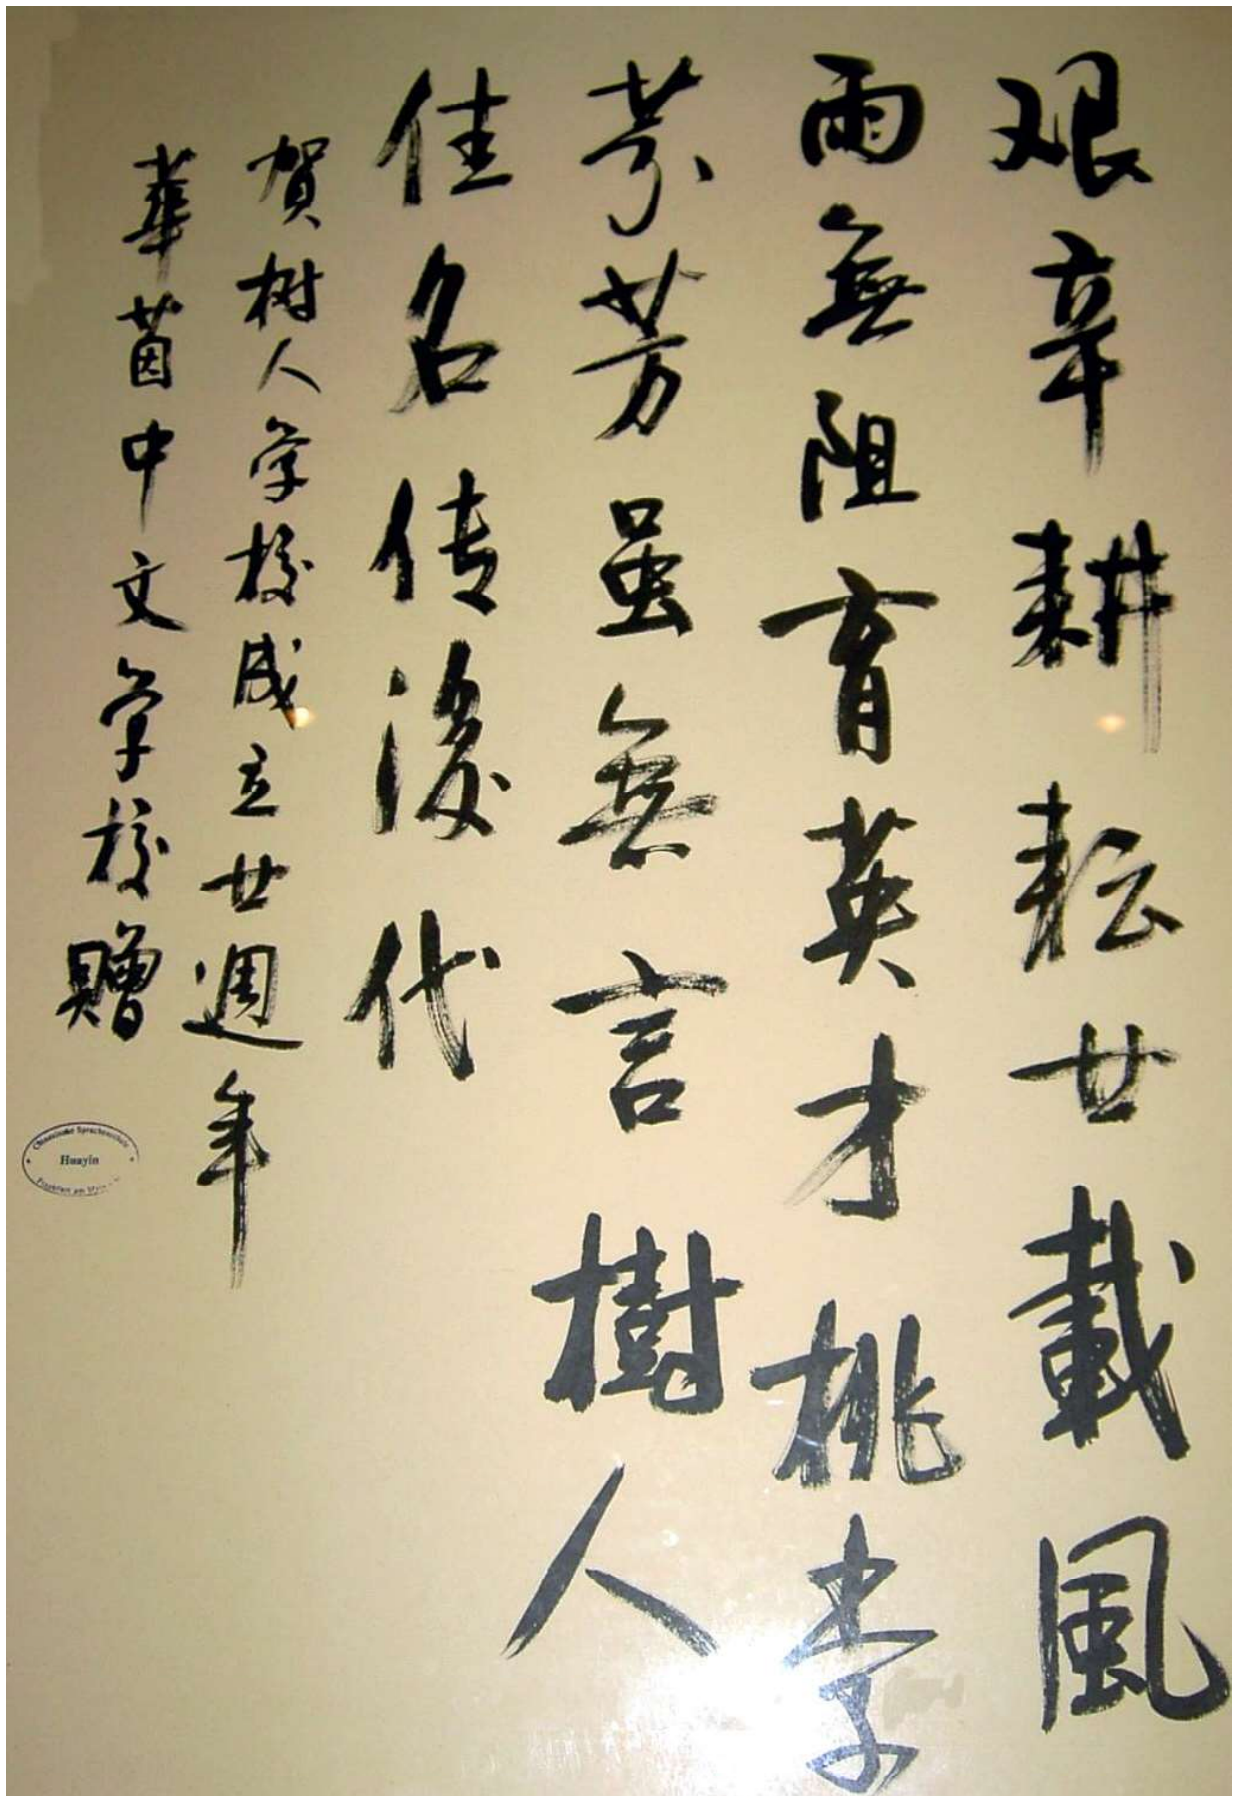 艰辛耕耘廿載風
雨無阻育英才桃李
芬芳虽無言樹人
佳名传後代
賀树人学校成立廿週年
華茵中文学校贈
Chinesische Sprachenschule
Huayin
Frankfurt am Main